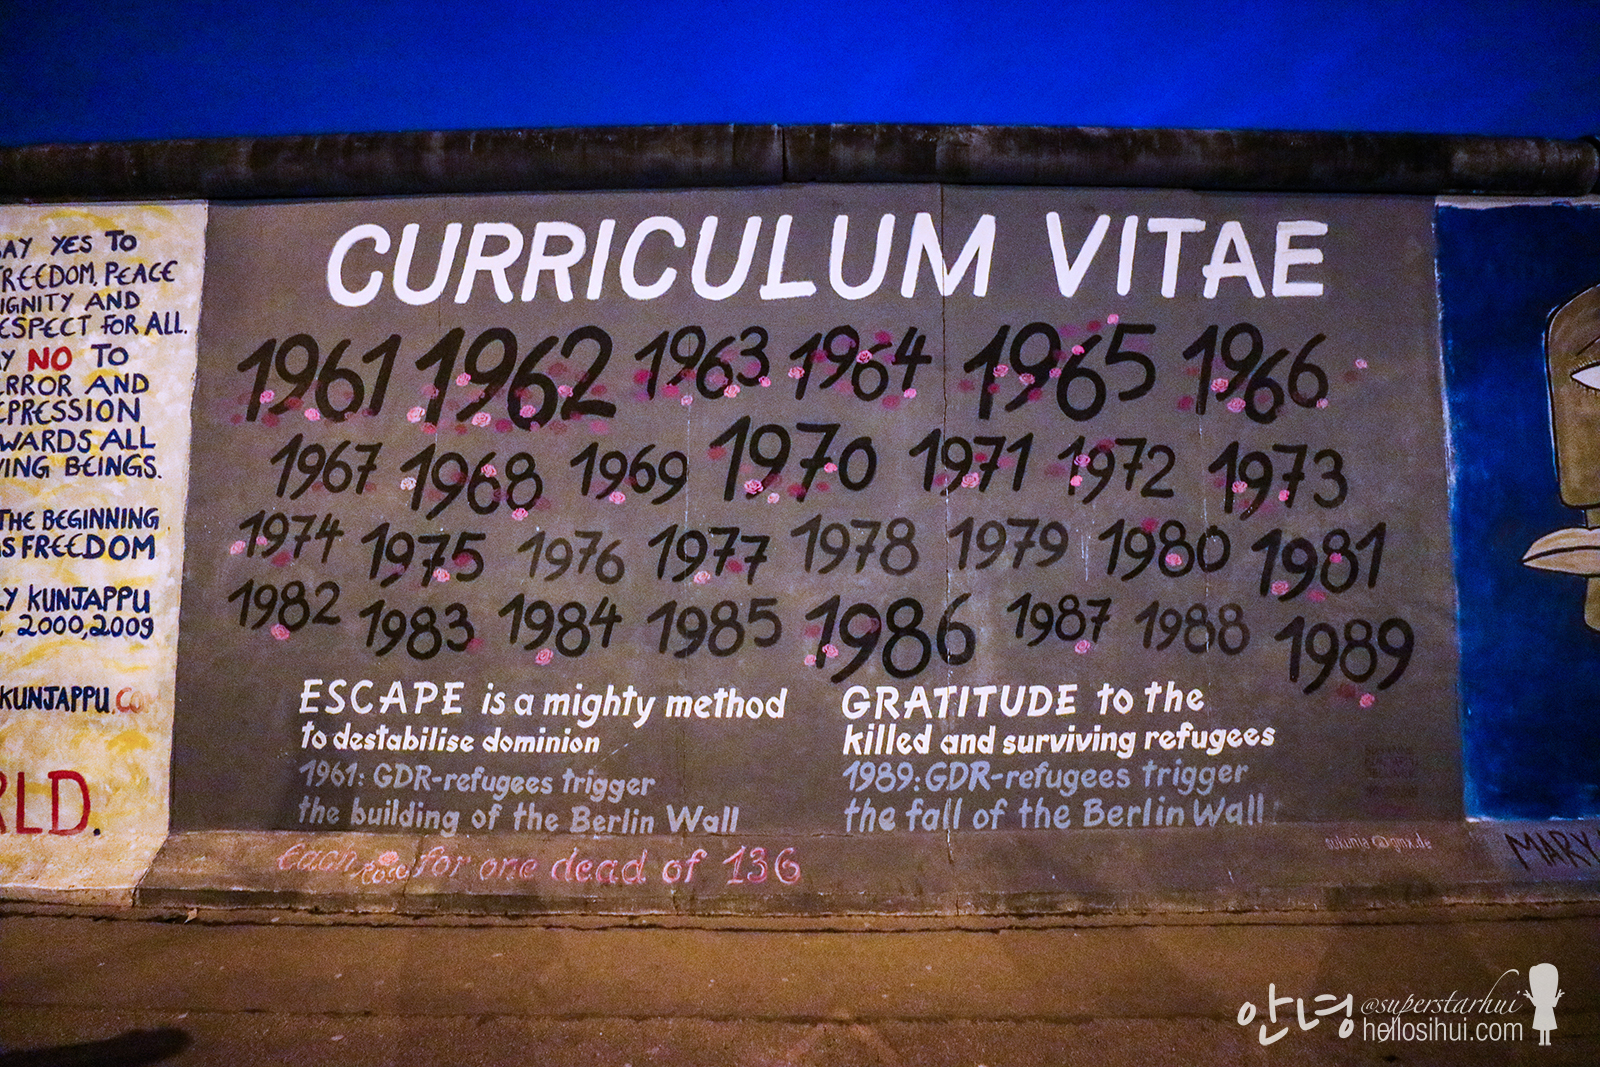 AY YES TO
REEDOM, PEACE
IGNITY AND
ESPECT FOR ALL.
Y NO TO
ERROR AND
EPRESSION
WARDS ALL
VING BEINGS.
THE BEGINNING
IS FREEDOM
LY KUNJAPPU
2000, 2009
KUNJAPPU.CO
RLD.
CURRICULUM VITAE
1961 1962 1963 1964 1965 1966
1967 1968 1969 1970 1971 1972 1973
1974 1975 1976 1977 1978 1979 1980 1981
1982 1983 1984 1985 1986 1987 1988 1989
ESCAPE is a mighty method
to destabilise dominion
1961: GDR-refugees trigger
the building of the Berlin Wall
GRATITUDE to the
killed and surviving refugees
1989: GDR-refugees trigger
the fall of the Berlin Wall
each rose for one dead of 136
sukunia@gmx.de
MARY
안녕 @superstarhui
hellosihui.com